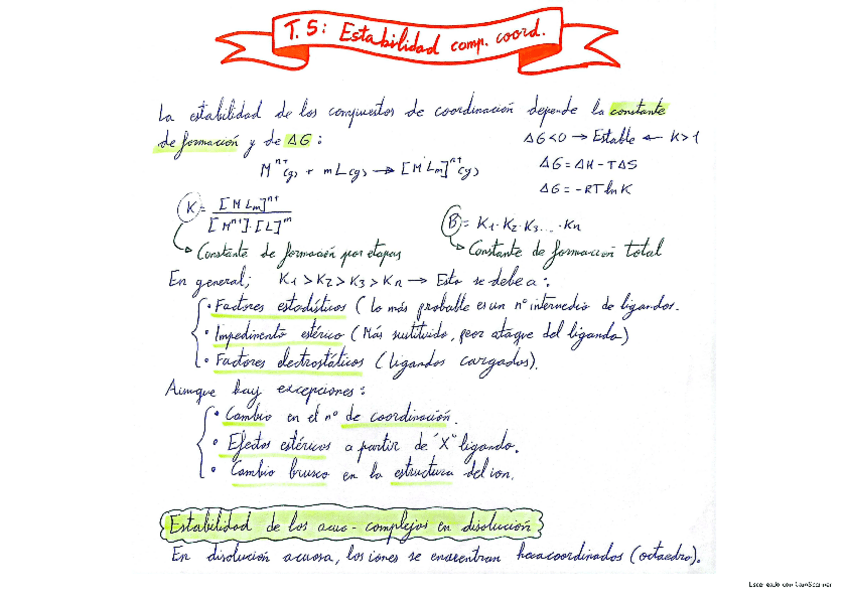 T.5: Estabilidad comp. coord.
La estabilidad de los compuestos de coordinación depende la constante
de formación y de ΔG :
ΔG<0 → Estable ← K>1
M^n+(g) + mL(g) → [MLm]^n+(g)
ΔG = ΔH - TΔS
ΔG = -RT ln K
K = [MLm]^n+ / [M^n+]·[L]^m
B = K1·K2·K3... ·Kn
↳ Constante de formación por etapas
↳ Constante de formación total
En general; K1 > K2 > K3 > Kn → Esto se debe a :
· Factores estadísticos (Lo más probable es un nº intermedio de ligandos.
· Impedimento estérico (Más sustituido, peor ataque del ligando)
· Factores electrostáticos (ligandos cargados).
Aunque hay excepciones :
· Cambio en el nº de coordinación.
· Efectos estéricos a partir de "X" ligando.
· Cambio brusco en la estructura del ion.
Estabilidad de los acuo-complejos en disolución
En disolución acuosa, los iones se encuentran hexacoordinados (octaedro).